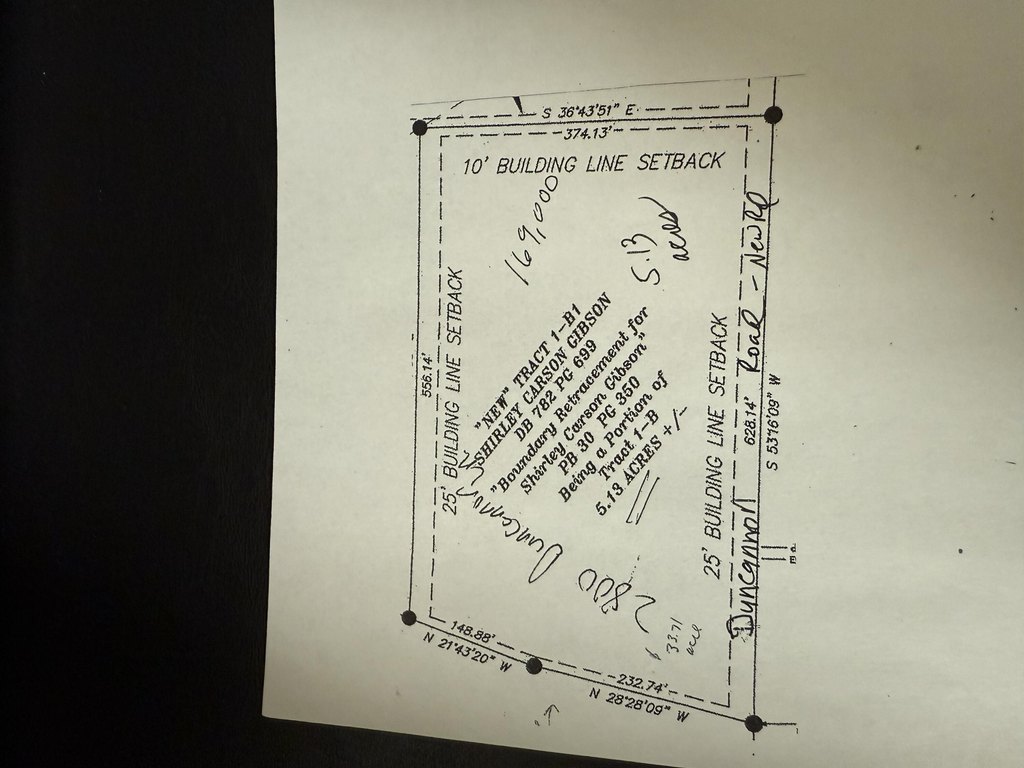 S 36°43'51" E
374.13'
10' BUILDING LINE SETBACK
169,000
5.13
acres
556.14'
25' BUILDING LINE SETBACK
"NEW" TRACT 1-B1
SHIRLEY CARSON GIBSON
DB 782 PG 699
"Boundary Retracement for
Shirley Carson Gibson"
PB 30 PG 350
Being a Portion of
Tract 1-B
5.13 ACRES +/-
2800 Duncannon
25' BUILDING LINE SETBACK
Duncannon Road - New Rd
628.14'
S 53°16'09" W
148.88'
N 21°43'20" W
232.74'
N 28°28'09" W
33.71